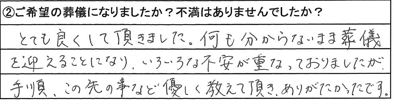 ②ご希望の葬儀になりましたか？不満はありませんでしたか？
とても良くして頂きました。何も分からないまま葬儀
を迎えることになり、いろいろな不安が重なっておりましたが、
手順、この先の事など優しく教えて頂き、ありがたかったです。